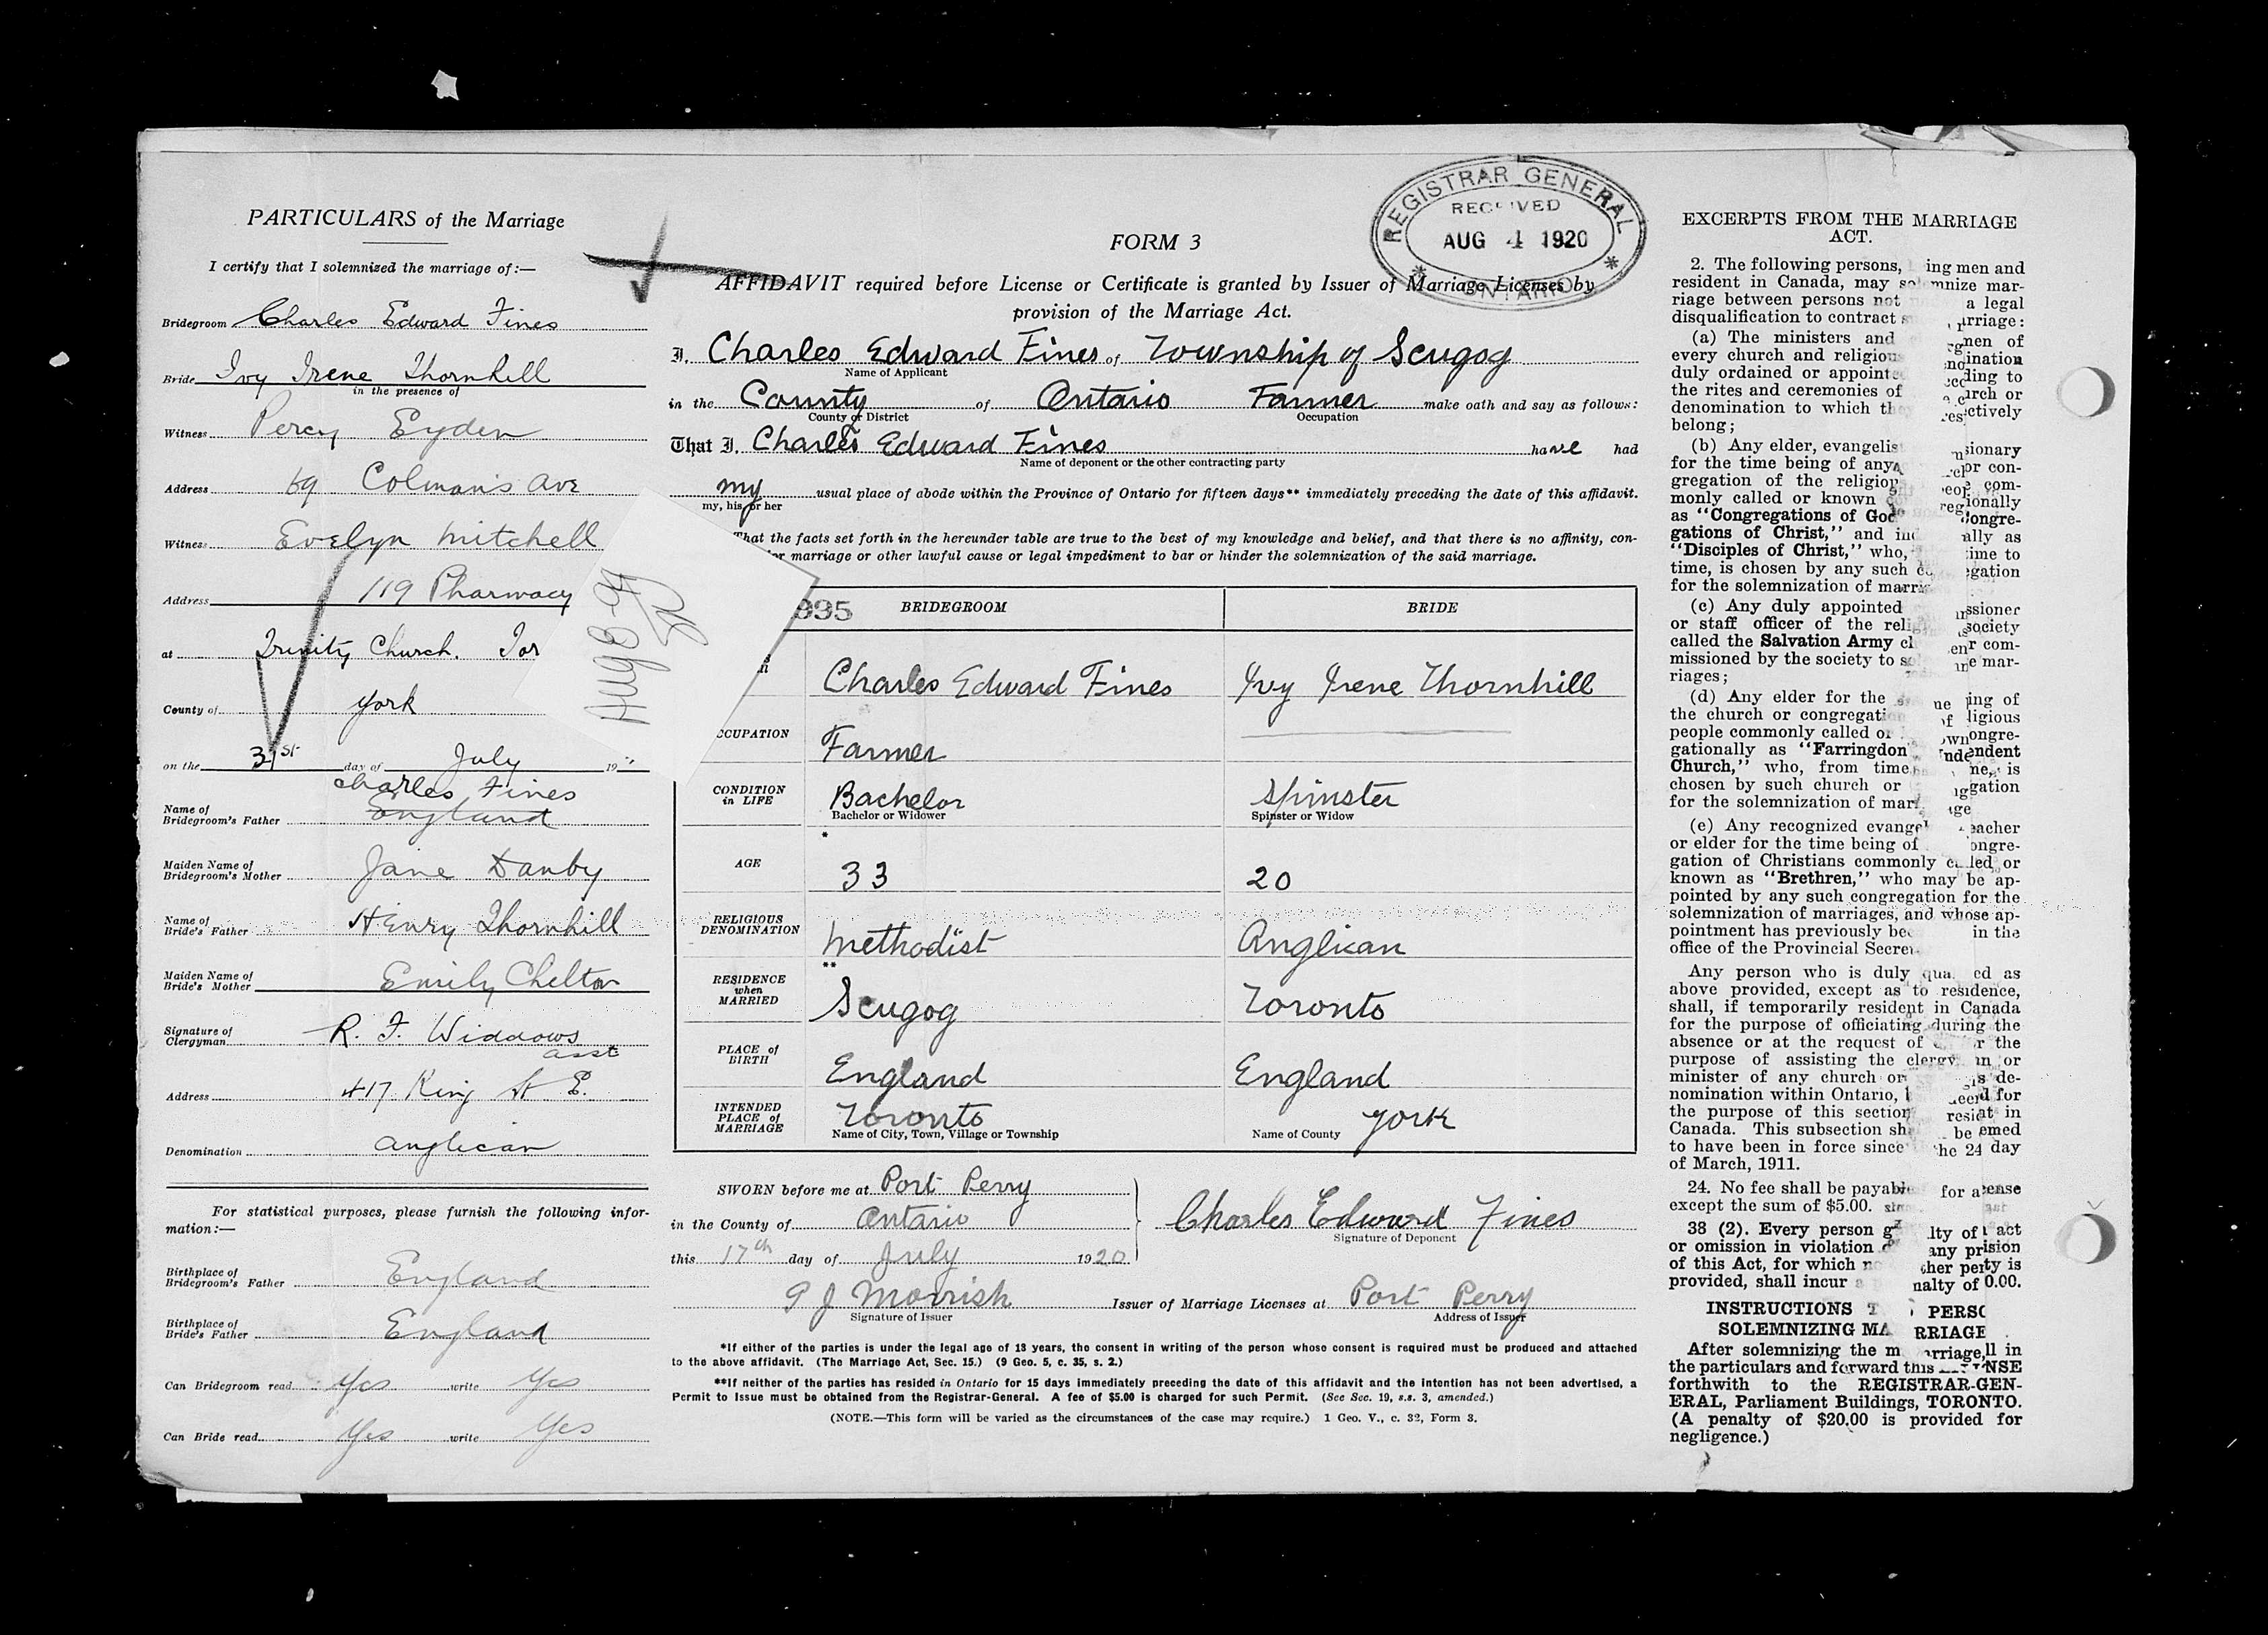 PARTICULARS of the Marriage
I certify that I solemnized the marriage of:—
Bridegroom Charles Edward Fines
Bride Ivy Irene Thornhill
in the presence of
Witness Percy Eyden
Address 69 Colman's Ave
Witness Evelyn Mitchell
Address 119 Pharmacy
at Trinity Church. Tor
County of York
on the 31st day of July 19
Charles Fines
Name of Bridegroom's Father England
Maiden Name of Bridegroom's Mother Jane Danby
Name of Bride's Father Henry Thornhill
Maiden Name of Bride's Mother Emily Chelton
Signature of Clergyman R. F. Widdows
asst
Address 417 King St E.
Denomination Anglican
For statistical purposes, please furnish the following infor-
mation:—
Birthplace of Bridegroom's Father England
Birthplace of Bride's Father England
Can Bridegroom read Yes write Yes
Can Bride read Yes write Yes
REGISTRAR GENERAL
RECEIVED
AUG 4 1920
ONTARIO
FORM 3
AFFIDAVIT required before License or Certificate is granted by Issuer of Marriage Licenses by
provision of the Marriage Act.
I, Charles Edward Fines of Township of Scugog
Name of Applicant
in the County of Ontario Farmer make oath and say as follows:
County or District Occupation
That I, Charles Edward Fines have had
Name of deponent or the other contracting party
my usual place of abode within the Province of Ontario for fifteen days** immediately preceding the date of this affidavit.
my, his or her
That the facts set forth in the hereunder table are true to the best of my knowledge and belief, and that there is no affinity, con-
or marriage or other lawful cause or legal impediment to bar or hinder the solemnization of the said marriage.
995 BRIDEGROOM BRIDE
Charles Edward Fines Ivy Irene Thornhill
CCUPATION Farmer
CONDITION in LIFE Bachelor Spinster
Bachelor or Widower Spinster or Widow
*
AGE 33 20
RELIGIOUS DENOMINATION Methodist Anglican
**
RESIDENCE when MARRIED Scugog Toronto
PLACE of BIRTH England England
INTENDED PLACE of MARRIAGE Toronto York
Name of City, Town, Village or Township Name of County
SWORN before me at Port Perry
in the County of Ontario
this 17th day of July 1920
Charles Edward Fines
Signature of Deponent
P J Morrish Issuer of Marriage Licenses at Port Perry
Signature of Issuer Address of Issuer
*If either of the parties is under the legal age of 18 years, the consent in writing of the person whose consent is required must be produced and attached
to the above affidavit. (The Marriage Act, Sec. 15.) (9 Geo. 5, c. 35, s. 2.)
**If neither of the parties has resided in Ontario for 15 days immediately preceding the date of this affidavit and the intention has not been advertised, a
Permit to Issue must be obtained from the Registrar-General. A fee of $5.00 is charged for such Permit. (See Sec. 19, s.s. 3, amended.)
(NOTE.—This form will be varied as the circumstances of the case may require.) 1 Geo. V., c. 32, Form 3.
EXCERPTS FROM THE MARRIAGE
ACT.
2. The following persons, ing men and
resident in Canada, may solemnize mar-
riage between persons not a legal
disqualification to contract arriage:
(a) The ministers and men of
every church and religious ination
duly ordained or appointed ding to
the rites and ceremonies of church or
denomination to which they respectively
belong;
(b) Any elder, evangelist sionary
for the time being of any con-
gregation of the religion com-
monly called or known regionally
as "Congregations of God Congre-
gations of Christ," and ally as
"Disciples of Christ," who, time to
time, is chosen by any such gation
for the solemnization of marri
(c) Any duly appointed issioner
or staff officer of the reli society
called the Salvation Army com-
missioned by the society to mar-
riages;
(d) Any elder for the ing of
the church or congregati of ligious
people commonly called or ongre-
gationally as "Farringdon ndendent
Church," who, from time is
chosen by such church or gation
for the solemnization of mar
(e) Any recognized evangel eacher
or elder for the time being of ongre-
gation of Christians commonly called or
known as "Brethren," who may be ap-
pointed by any such congregation for the
solemnization of marriages, and whose ap-
pointment has previously in the
office of the Provincial
Any person who is duly qua ed as
above provided, except as to residence,
shall, if temporarily resident in Canada
for the purpose of officiating during the
absence or at the request of the
purpose of assisting the clergy or
minister of any church or de-
nomination within Ontario, for
the purpose of this section resi in
Canada. This subsection be emed
to have been in force since the 24 day
of March, 1911.
24. No fee shall be payable for a
except the sum of $5.00.
38 (2). Every person lty of act
or omission in violation any
of this Act, for which is
provided, shall incur nalty of 0.00.
INSTRUCTIONS PERSO
SOLEMNIZING MARRIAGE
After solemnizing the marriage, ll in
the particulars and forward this NSE
forthwith to the REGISTRAR-GEN-
ERAL, Parliament Buildings, TORONTO.
(A penalty of $20.00 is provided for
negligence.)